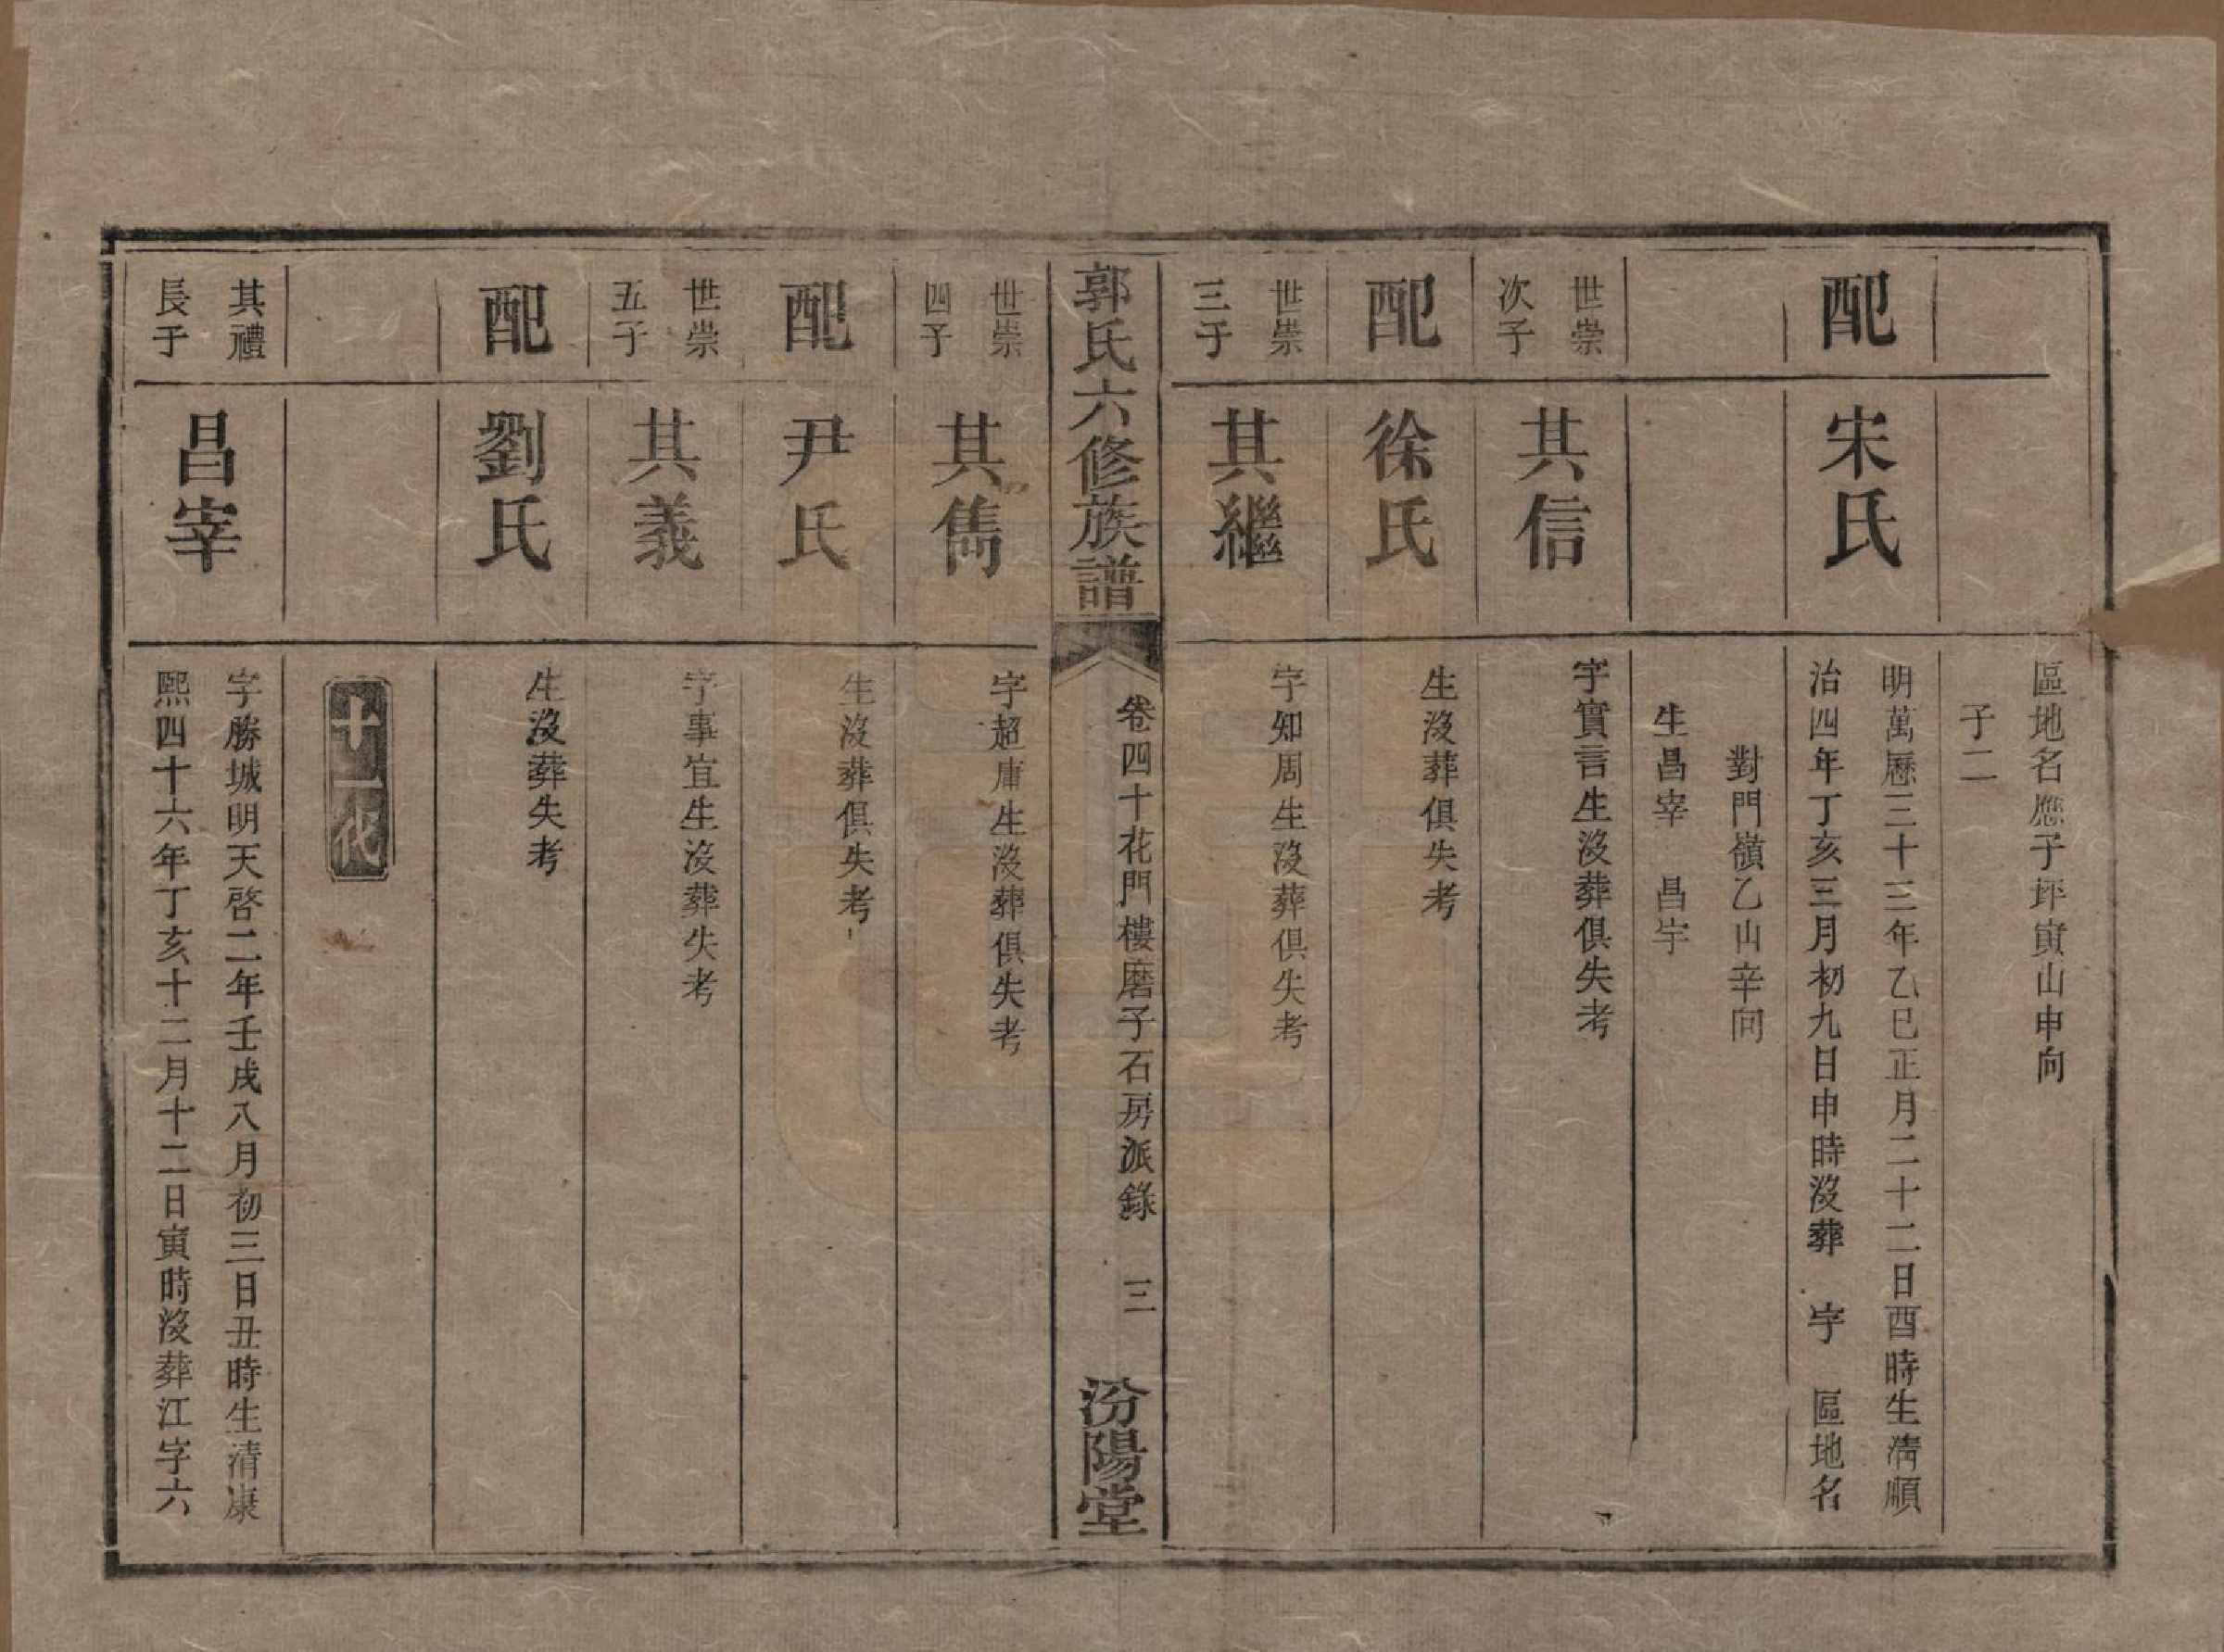 區地名應子坪寅山申向
子二
配
宋氏
明萬曆三十三年乙巳正月二十二日酉時生清順
治四年丁亥三月初九日申時沒葬 字 區地名
對門嶺乙山辛向
生昌宰 昌宇
世崇
次子
其信
字實言生沒葬俱失考
配
徐氏
生沒葬俱失考
世崇
三子
其繼
字知周生沒葬俱失考
郭氏六修族譜
卷四十花門樓磨子石房派錄 三
汾陽堂
世崇
四子
其雋
字超庸生沒葬俱失考
配
尹氏
生沒葬俱失考
世崇
五子
其義
字事宜生沒葬失考
配
劉氏
生沒葬失考
十一代
其禮
長子
昌宰
字勝城明天啓二年壬戌八月初三日丑時生清康
熙四十六年丁亥十二月十二日寅時沒葬江字六